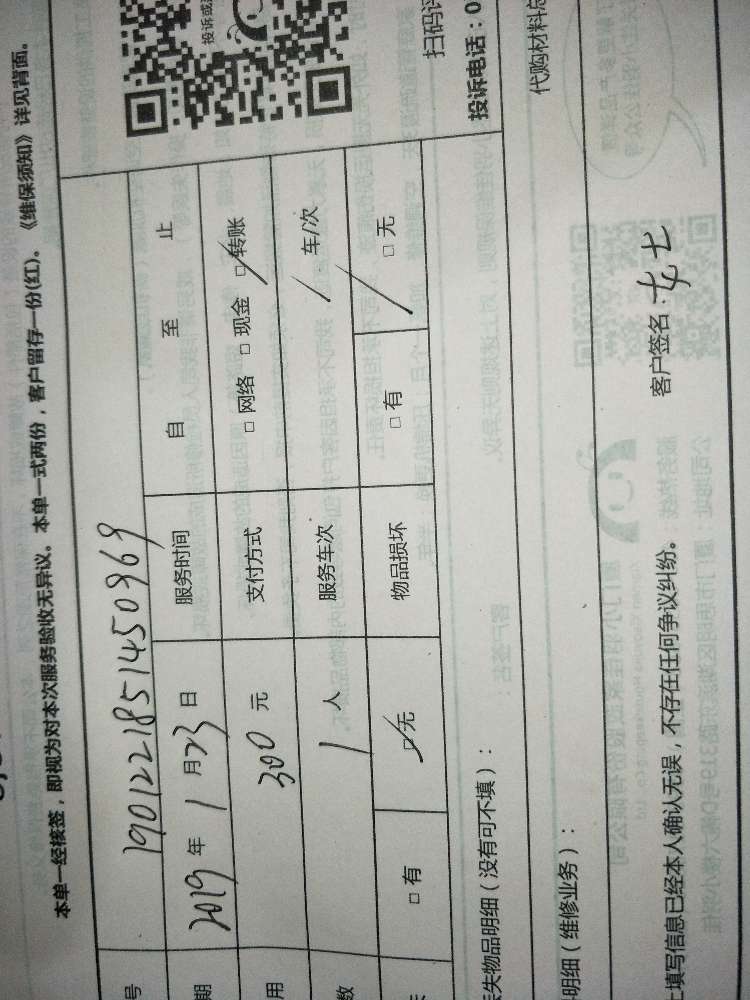 本单一经核签，即视为对本次服务验收无异议。本单一式两份，客户留存一份(红)。《维保须知》详见背面。
号 1901221851450969
期 2019 年 1 月 23 日 服务时间 自 至 止
用 300 元 支付方式 □ 网络 □ 现金 □ 转账
数 1 人 服务车次 / 车/次
□ 有 □ 无 物品损坏 □ 有 □ 无
失物品明细（没有可不填）：
投诉电话：0
扫码评
明细（维修业务）：
代购材料总
填写信息已经本人确认无误，不存在任何争议纠纷。
客户签名：